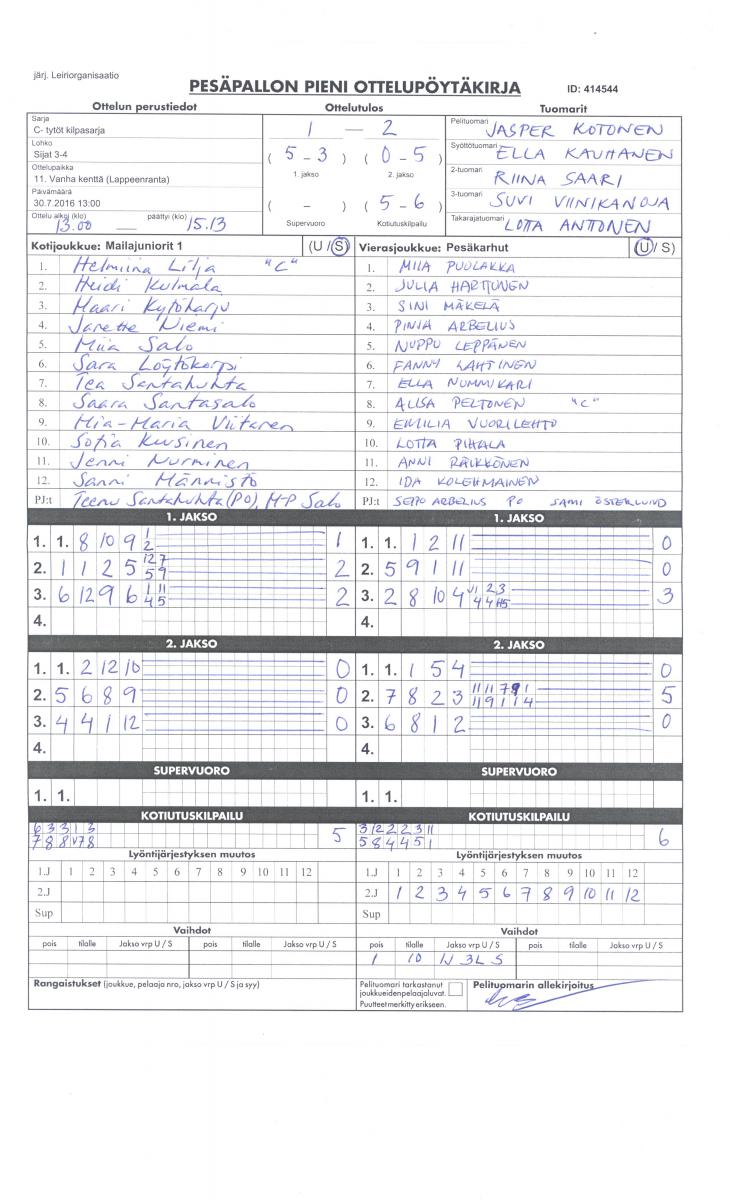 järj. Leiriorganisaatio
PESÄPALLON PIENI OTTELUPÖYTÄKIRJA ID: 414544
Ottelun perustiedot Ottelutulos Tuomarit
Sarja
C- tytöt kilpasarja
Lohko
Sijat 3-4
Ottelupaikka
11. Vanha kenttä (Lappeenranta)
Päivämäärä
30.7.2016 13:00
Ottelu alkoi (klo) päättyi (klo)
13.00 15.13
1 — 2
( 5 - 3 ) ( 0 - 5 )
1. jakso 2. jakso
( - ) ( 5 - 6 )
Supervuoro Kotiutuskilpailu
Pelituomari JASPER KOTONEN
Syöttötuomari ELLA KAUHANEN
2-tuomari RIINA SAARI
3-tuomari SUVI VIINIKANOJA
Takarajatuomari LOTTA ANTTONEN
Kotijoukkue: Mailajuniorit 1 (U / S)
1. Helmiina Lilja "C"
2. Heidi Kulmala
3. Maari Kytöharju
4. Janette Niemi
5. Miia Salo
6. Sara Löytökorpi
7. Tea Santahuhta
8. Saara Santasalo
9. Mia-Maria Viitanen
10. Sofia Kuusinen
11. Jenni Nurminen
12. Sanni Männistö
PJ:t Teemu Santahuhta (PO), M-P Salo
Vierasjoukkue: Pesäkarhut (U / S)
1. MIIA PUOLAKKA
2. JULIA HARTTUNEN
3. SINI MÄKELÄ
4. PINJA ARBELIUS
5. NUPPU LEPPÄNEN
6. FANNY LAHTINEN
7. ELLA NUMMIKARI
8. ALISA PELTONEN "C"
9. EMILIA VUORILEHTO
10. LOTTA PIHALA
11. ANNI RÄIKKÖNEN
12. IDA KOLEHMAINEN
PJ:t SEPPO ARBELIUS PO SAMI ÖSTERLUND
1. JAKSO
1. 1. 8 10 9 1 2 1
2. 1 1 2 5 12 7 5 9 2
3. 6 12 9 6 1 11 4 5 2
4.
1. JAKSO
1. 1. 1 2 11 0
2. 5 9 1 11 0
3. 2 8 10 4 3
4.
2. JAKSO
1. 1. 2 12 10 0
2. 5 6 8 9 0
3. 4 4 1 12 0
4.
2. JAKSO
1. 1. 1 5 4 0
2. 7 8 2 3 5
3. 6 8 1 2 0
4.
SUPERVUORO
1. 1.
SUPERVUORO
1. 1.
KOTIUTUSKILPAILU
6 3 3 1 3
7 8 8 V7 8 5
KOTIUTUSKILPAILU
3 12 2 2 3 11
5 8 4 4 5 1 6
Lyöntijärjestyksen muutos
1.J 1 2 3 4 5 6 7 8 9 10 11 12
2.J
Sup
Lyöntijärjestyksen muutos
1.J 1 2 3 4 5 6 7 8 9 10 11 12
2.J 1 2 3 4 5 6 7 8 9 10 11 12
Sup
Vaihdot
pois tilalle Jakso vrp U / S pois tilalle Jakso vrp U / S
Vaihdot
pois tilalle Jakso vrp U / S pois tilalle Jakso vrp U / S
1 10 1J 3L S
Rangaistukset (joukkue, pelaaja nro, jakso vrp U / S ja syy)
Pelituomari tarkastanut
joukkueidenpelaajaluvat.
Puutteet merkitty erikseen.
Pelituomarin allekirjoitus